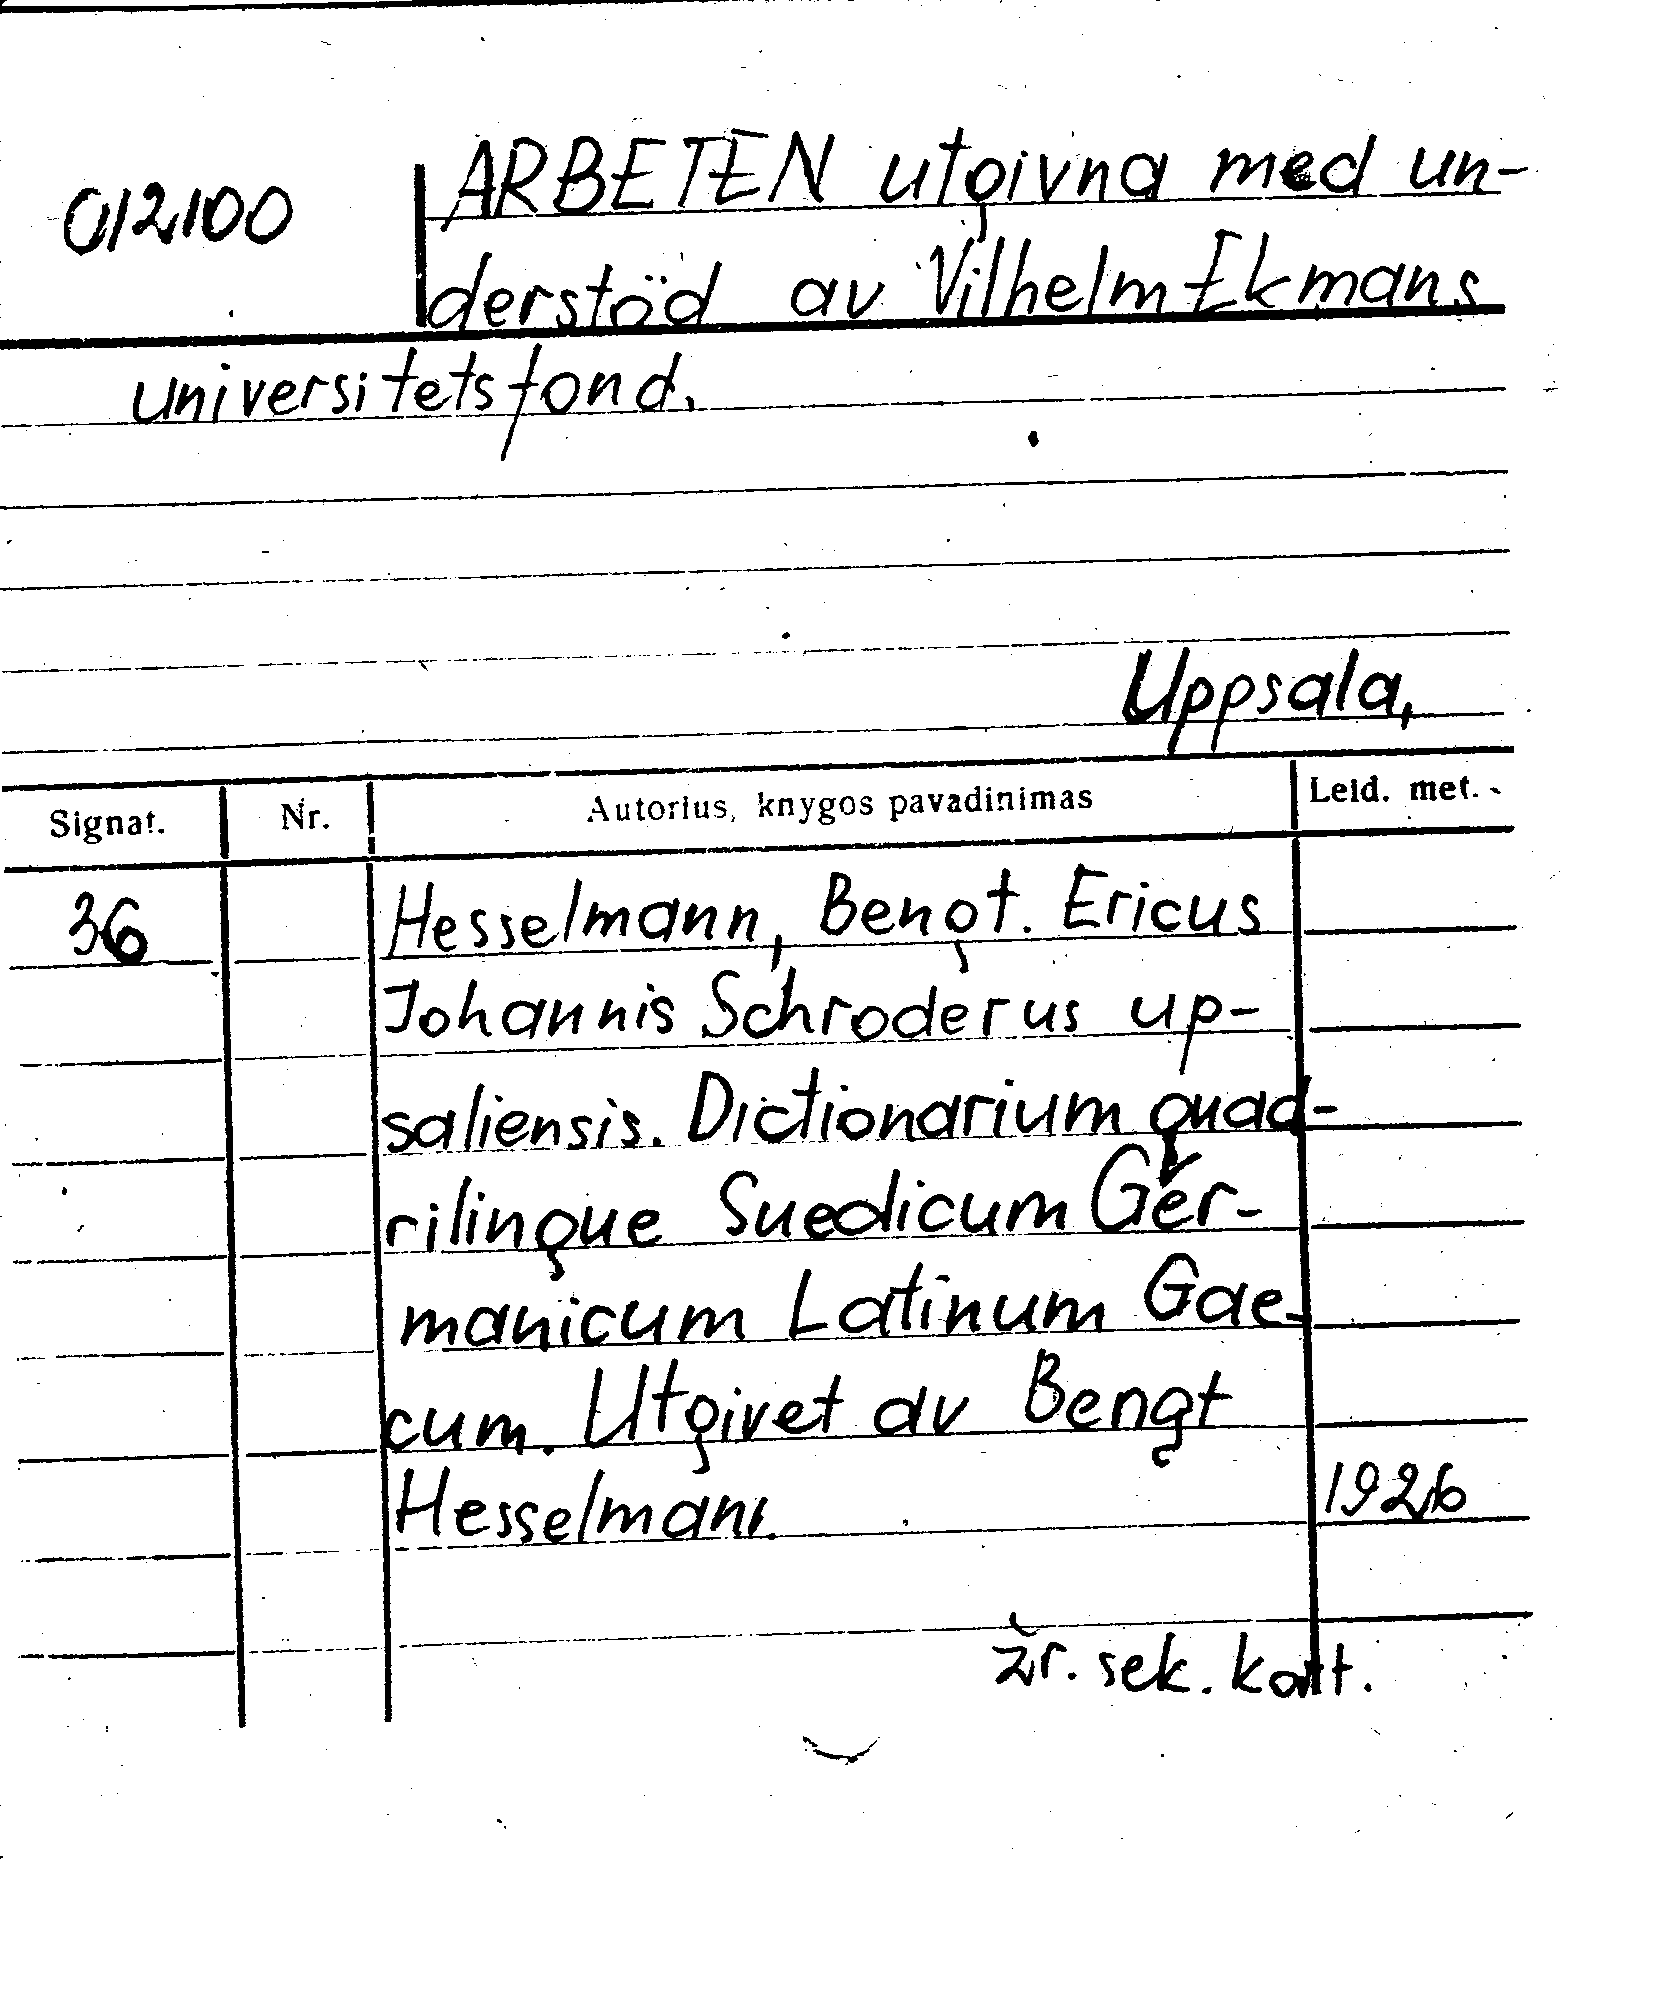 012100
ARBETEN utgivna med un-
derstöd av Vilhelm Ekmans
universitetsfond.
Uppsala,
Signat. Nr. Autorius, knygos pavadinimas Leid. met.
36 Hesselmann, Bengt. Ericus
Johannis Schroderus up-
saliensis. Dictionarium quad-
rilingue Suedicum Ger-
manicum Latinum Gae-
cum. Utgivet av Bengt
Hesselmann. 1926
žr. sek. kort.